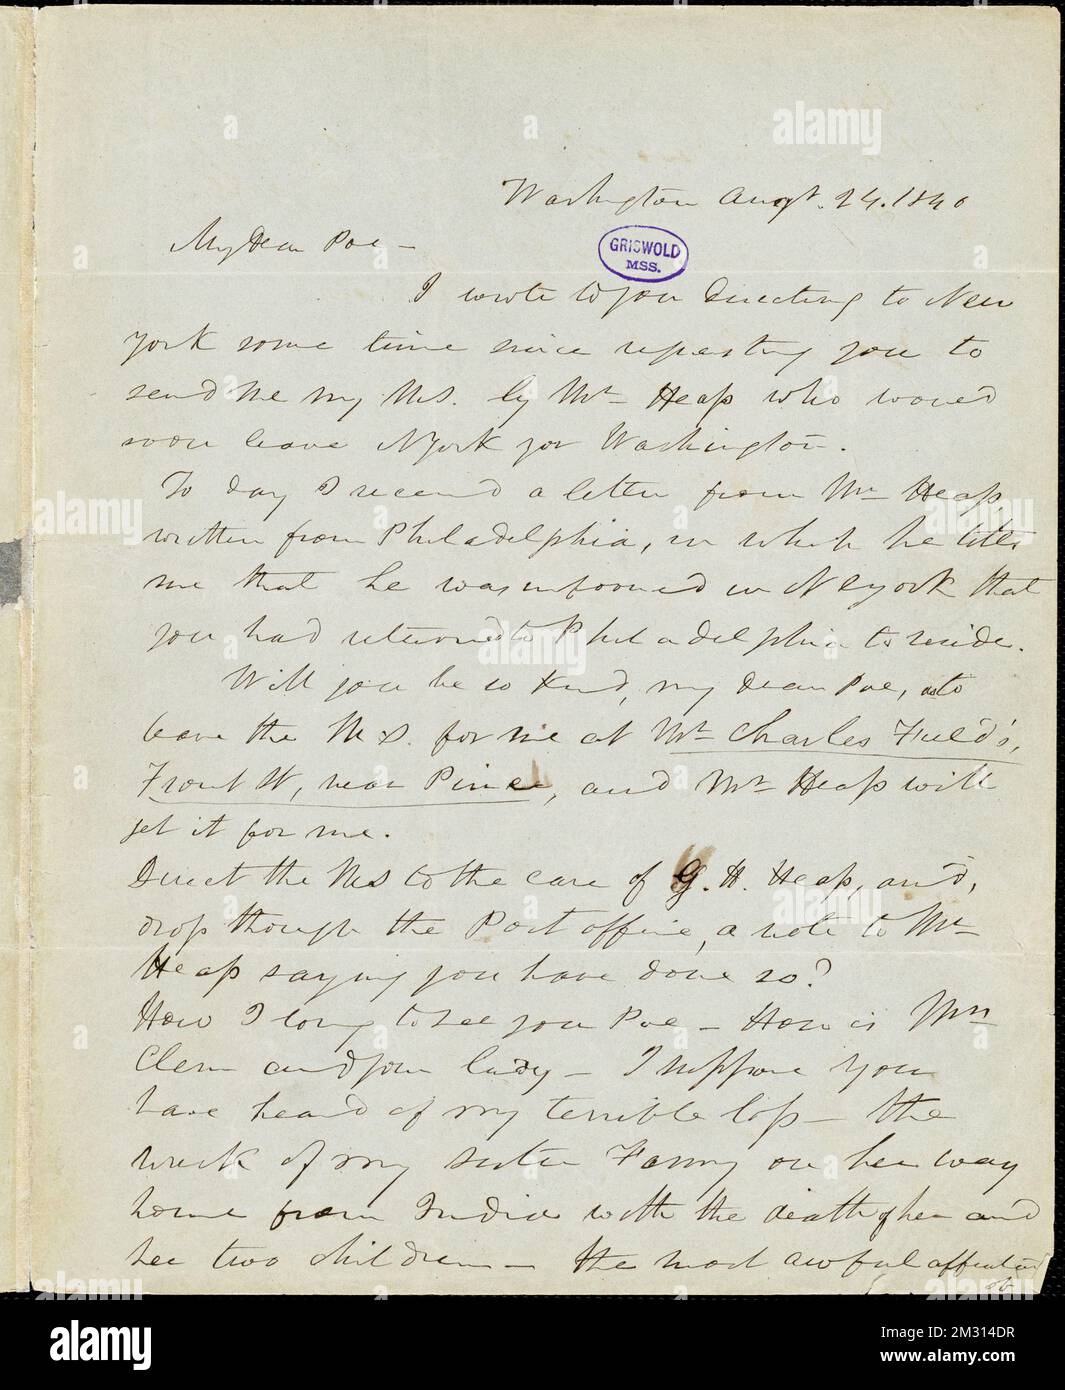 Washington Augt. 24. 1840
My Dear Poe —
GRISWOLD
MSS.
I wrote to you Directing to New
York some time since requesting you to
send me my MS. by Mr Heap who would
soon leave NYork for Washington.
To day I received a letter from Mr Heap
written from Philadelphia, in which he tells
me that he was informed in NYork that
you had returned to Philadelphia to reside.
Will you be so kind, my dear Poe, as to
leave the MS. for me at Mr Charles Field's,
Front St, near Pine, and Mr Heap will
get it for me.
Direct the MS to the care of G. H. Heap, and,
drop through the Post office, a note to Mr
Heap saying you have done so?
How I long to see you Poe — How is Mrs
Clem and your lady — I suppose you
have heard of my terrible loss — the
wreck of my sister Fanny on her way
home from India with the death of her and
her two children — the most awful affliction
alamy
www.alamy.com
Image ID: 2M314DR
www.alamy.com